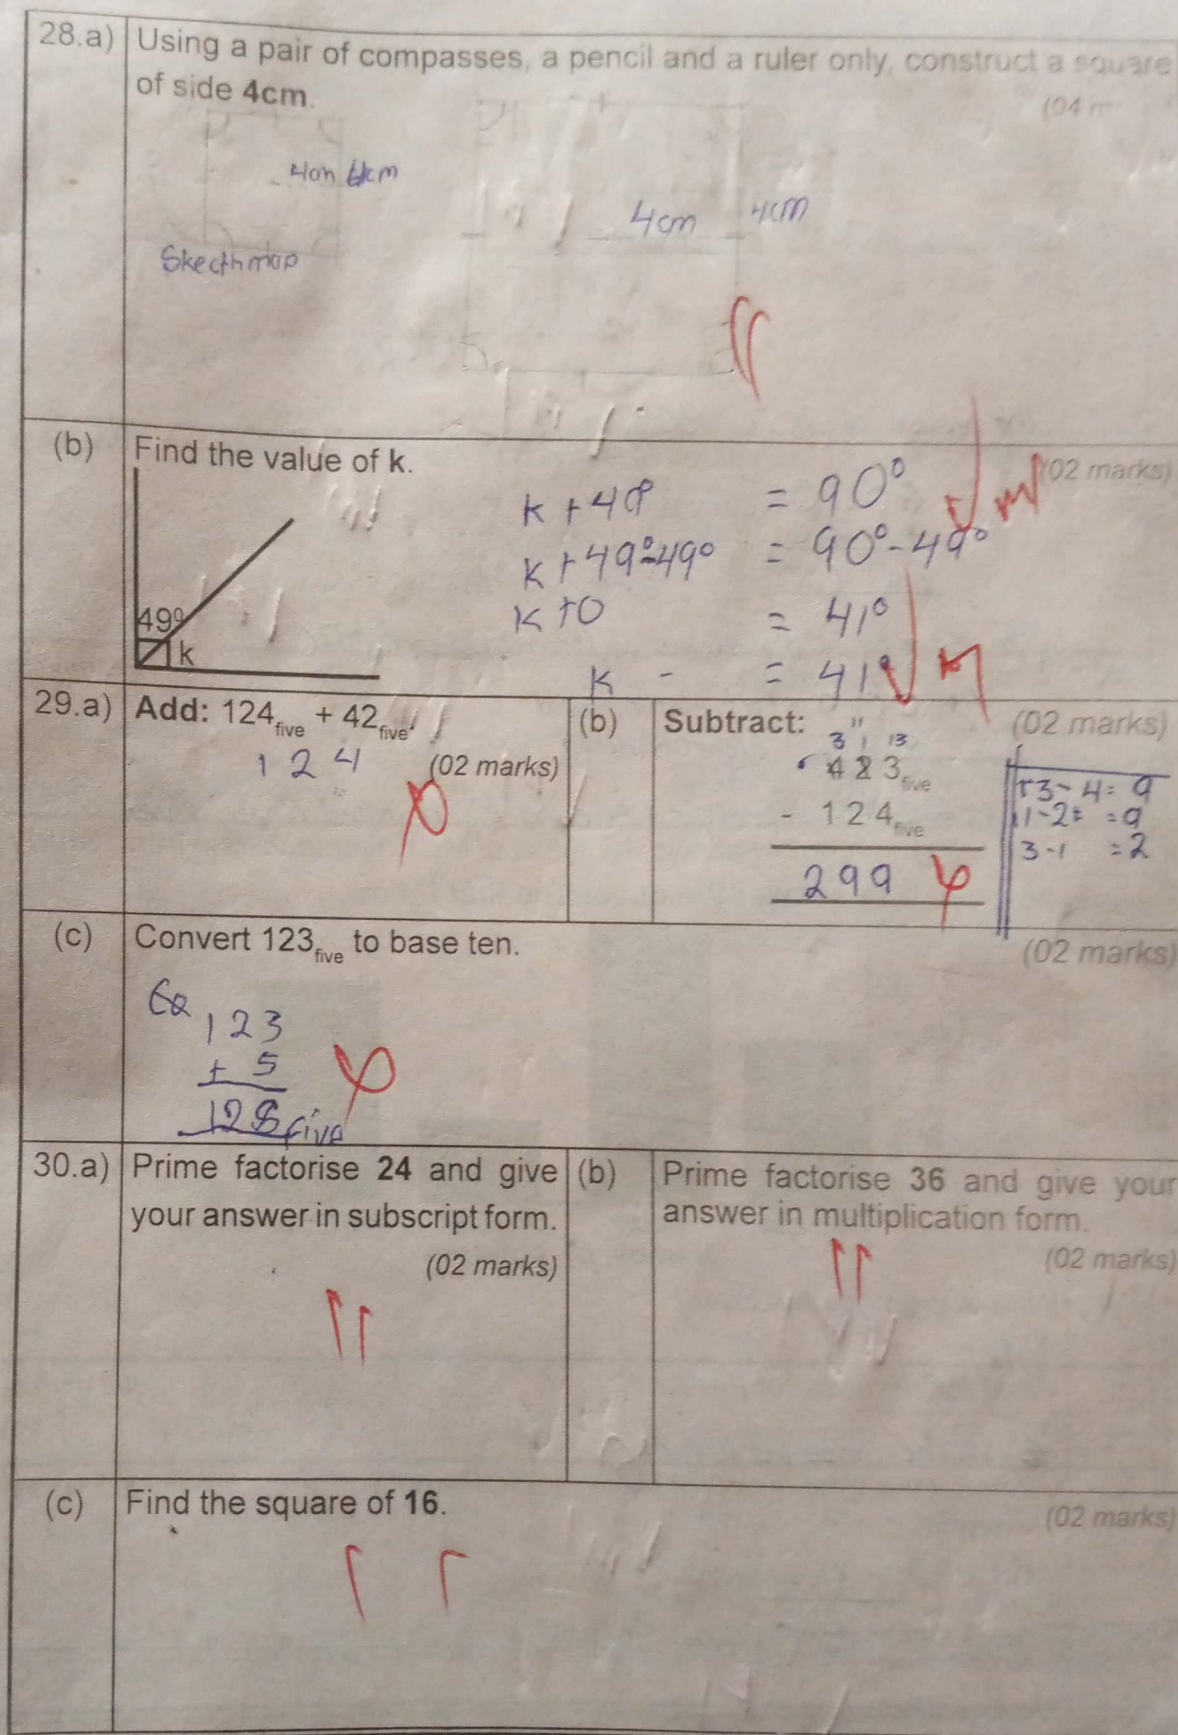 28.a) Using a pair of compasses, a pencil and a ruler only, construct a square
of side 4cm.
(04
4cm 4cm
Skecthmap
4cm 4cm
(b) Find the value of k.
(02 marks)
49°
k
k + 49° = 90°
k + 49° - 49° = 90° - 49°
k + 0 = 41°
k - = 41°
29.a) Add: 124five + 42five.
(02 marks)
124
(b) Subtract:
(02 marks)
3 11 13
423five
- 124five
299
13 - 4 = 9
11 - 2 = = 9
3 - 1 = 2
(c) Convert 123five to base ten.
(02 marks)
123
+ 5
128five
30.a) Prime factorise 24 and give
your answer in subscript form.
(02 marks)
(b) Prime factorise 36 and give your
answer in multiplication form.
(02 marks)
(c) Find the square of 16.
(02 marks)